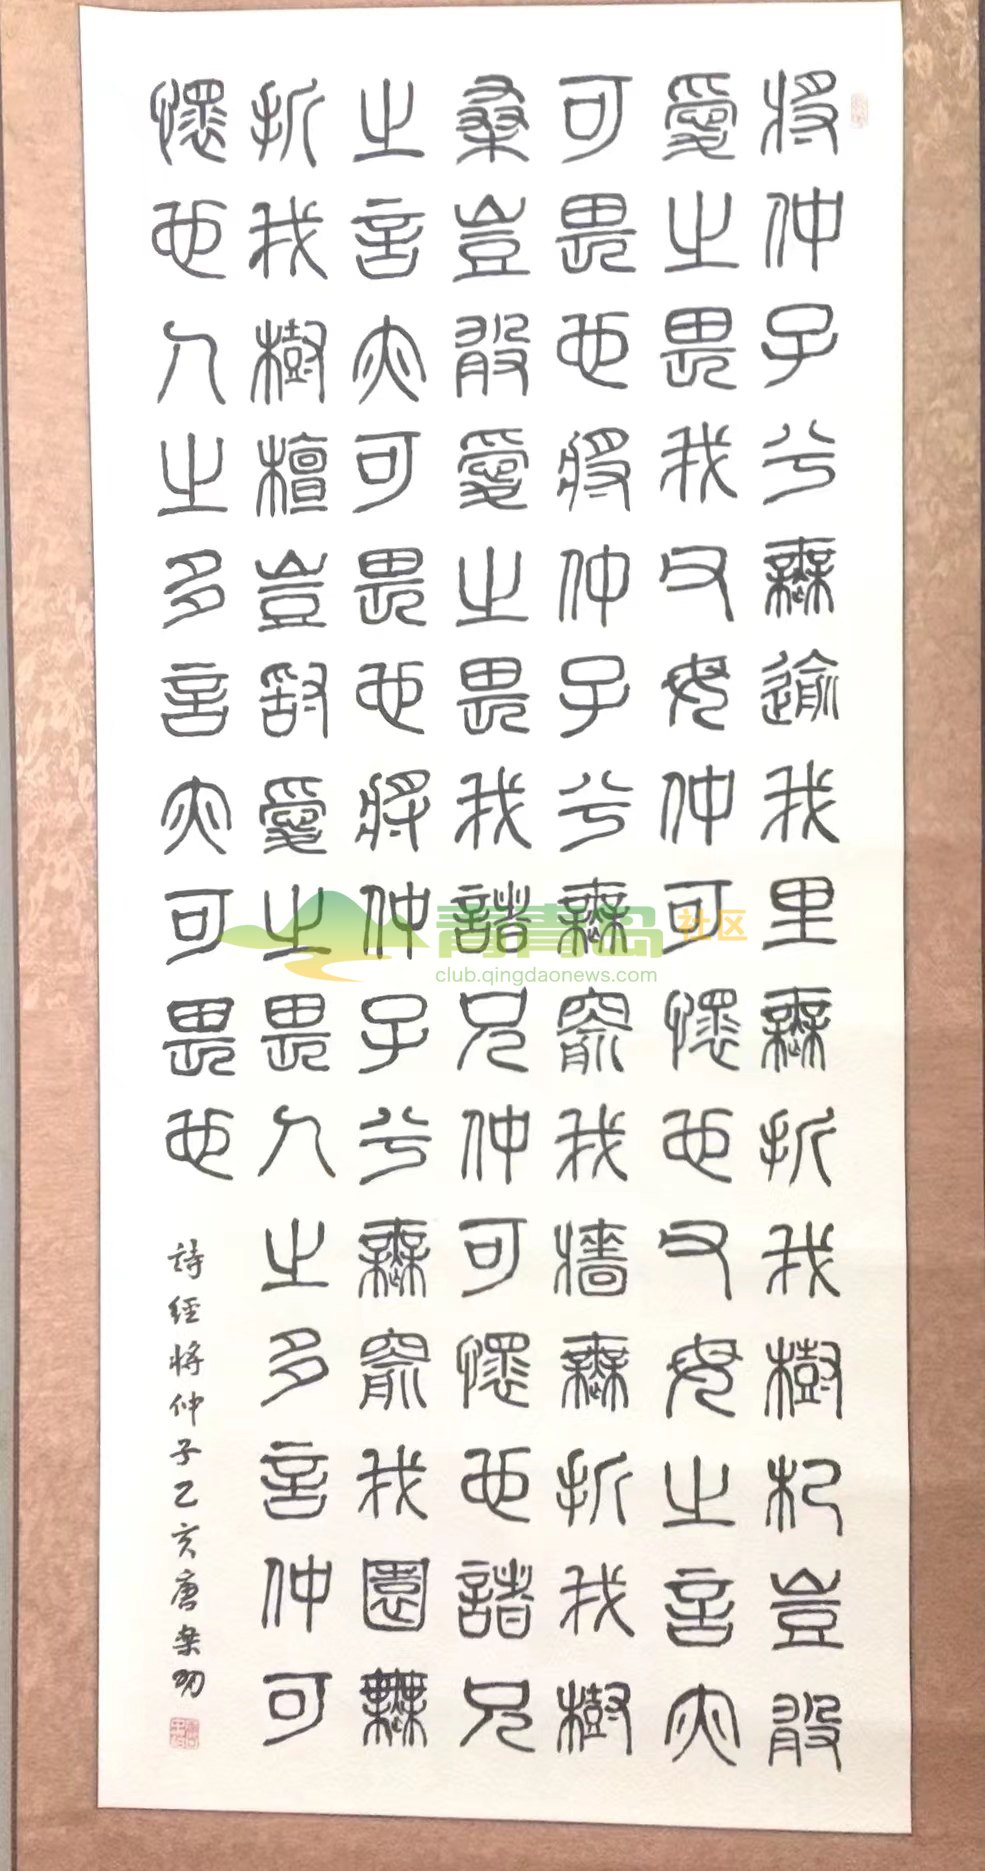 將仲子兮無逾我里無折我樹杞豈敢
愛之畏我父母仲可懷也父母之言亦
可畏也將仲子兮無窬我牆無折我樹
桑豈敢愛之畏我諸兄仲可懷也諸兄
之言亦可畏也將仲子兮無窬我園無
折我樹檀豈敢愛之畏人之多言仲可
懷也人之多言亦可畏也
詩經将仲子己亥唐
青青岛社区
club.qingdaonews.com